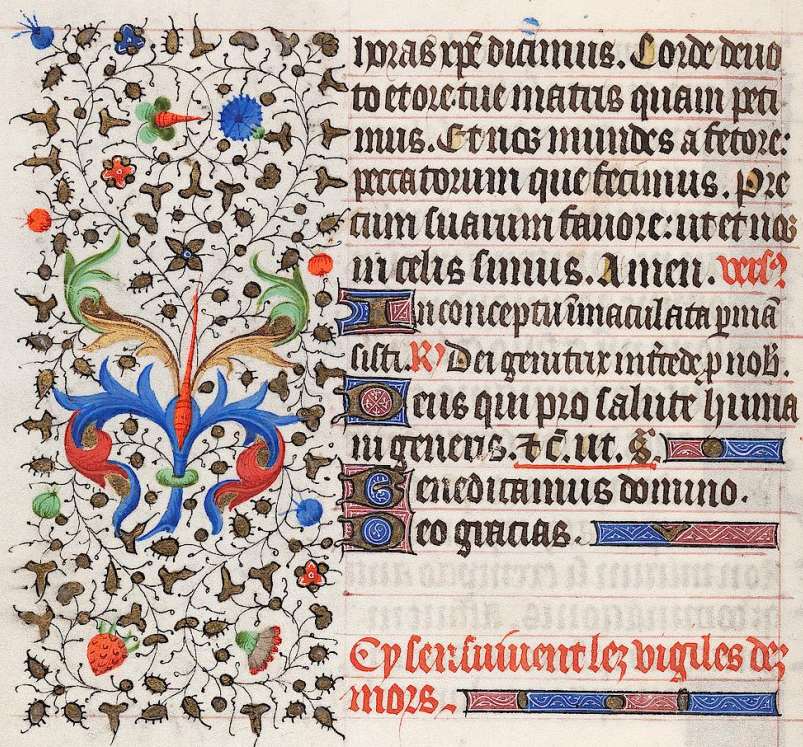 horas xpe dicimus. Corde deuo
to et ore: tue matris quam peti
mus. Et nos mundes a fetore:
peccatorum que fecimus. Pre
cum suarum fauore: ut et nos
in celis simus. Amen. vers
In conceptu īmaculata pmā
sisti. R/ Dei genitrix int̄cede p nob̄.
Deus qui pro salute huma
ni generis. ⁊ c̄. ut. s̄.
Benedicamus domino.
Deo gracias.
Cy sensuiuent lez vigiles dez
mors.